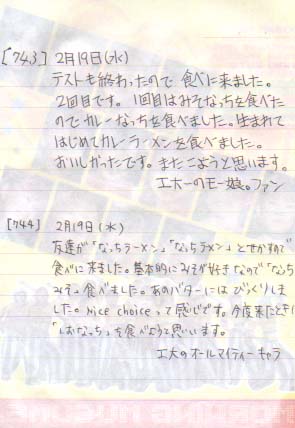 [743] 2月19日(水)
テストも終わったので 食べに来ました。
2回目です。1回目はみそなっちを食べた
のでカレーなっちを食べました。生まれて
はじめてカレーラーメンを食べました。
おいしかったです。またこようと思います。
工大のモー娘。ファン
[744] 2月19日(水)
友達が「なっちラーメン」「なっちラーメン」とせかすので
食べに来ました。基本的にみそが好きなので「なっち
みそ」食べました。あのバターにはびっくりしま
した。Nice choiceって感じです。今度来たときは
「しおなっち」を食べようと思います。
工大のオールマイティーキャラ
MORNING MUSUME